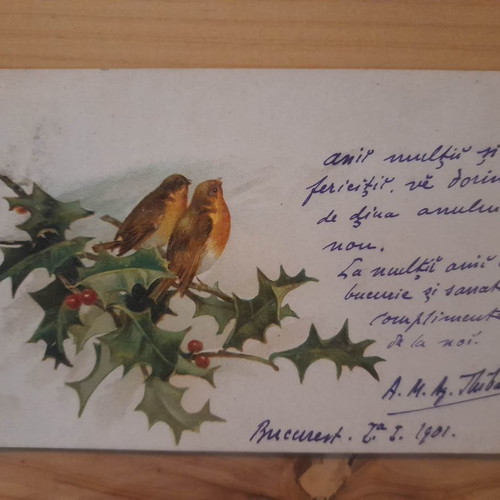 anii mulțĭ și
fericițĭ, vĕ dorim
de ḑiua anului
nou.
La mulțĭ anĭ
bucurie și sanat
compliment
de la noi.
A. M. &
Bucuresti. 1901.